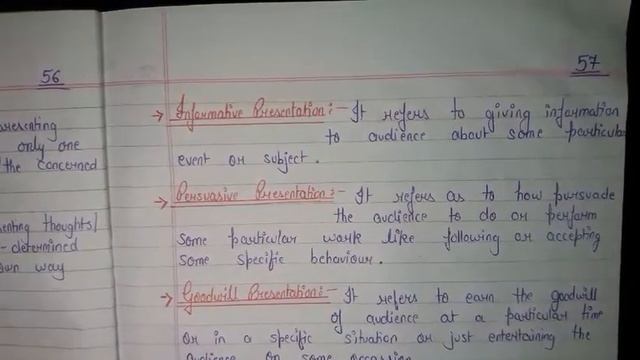 56
only one
the concerned
thoughts/
determined
own way
57
→ Informative Presentation:- It refers to giving information
to audience about some particular
event or subject.
→ Persuasive Presentation:- It refers as to how pursuade
the audience to do or perform
some particular work like following or accepting
some specific behaviour.
→ Goodwill Presentation:- It refers to earn the goodwill
of audience at a particular time
or in a specific situation or just entertaining the
audience on some occasion